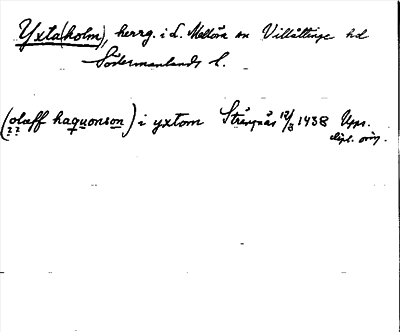 Yxta(holm), herrg. i d. Mellösa sn Villåttinge hd
Södermanlands l.
(olaff haquonson) i yxtom Strängnäs 12/3 1438 Upps.
dipl. orig.